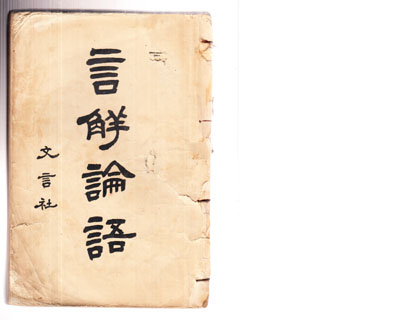 言解論語
文言社